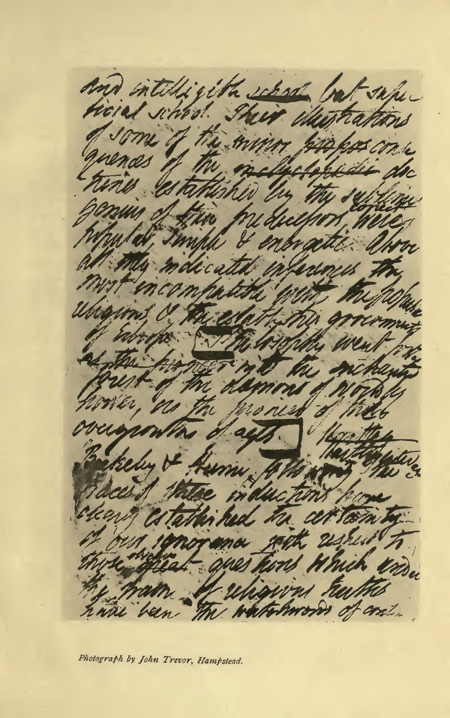 and intelligible school but super
ficial school. Their illustrations
of some of the minor conse
quences of the encyclopedic doc
trines established by the sublime
genius of their predecessors were
popular, simple & energetic. Above
all they indicated inferences the
most incompatible with the popular
religions & the established governments
of Europe. Philosophy went forth
as the pioneer into the enchanted
forest of the dæmons of worldly
power, as the pioneer of the
overgrowths of ages
Hartley
Berkeley & Hume, following the
traces of these inductions have
clearly established the certainty
of our ignorance with respect to
those obscure great questions which under
the name of religious truths
have been the watchwords of con
Photograph by John Trevor, Hampstead.